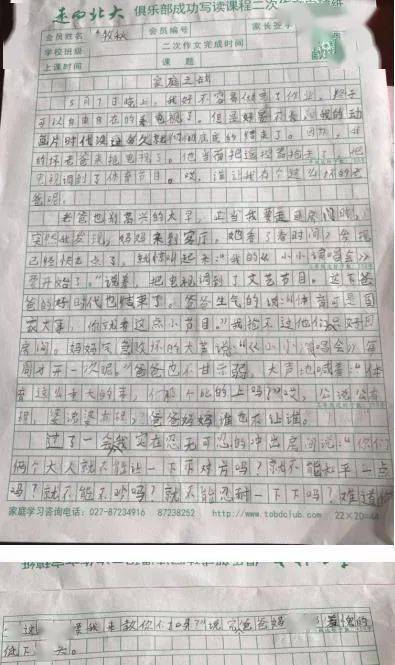 走向北大 俱乐部成功写读课程二次作文
会员姓名 会员编号 家长签字
学校班级 二次作文完成时间
上课时间 课题
家庭之战
5月7日晚上，我好不容易做完了作业，终于
可以自由自在的看电视了。但是好景不长，我的动
画片时代没过多久就
的坏老爸来抢电视了。他当面把遥控器抢去了，把
电视调到了体育节目。哎，谁让我有个这么坏的老
爸呢。
老爸也别高兴的太早，正当我要走进房间时，
突然我发现，妈妈来到客厅。她看了看时间，发现
已经快七点了，就惊叫起来：“我的《小小演唱会》
要开始了。”说着，把电视调到了文艺节目。这下爸
爸的好时代也结束了。爸爸生气的说：“体育可是国
家大事，你就看这点小节目。”我抢不过他们只好回
房间。妈妈气急败坏的大声说：“《小小演唱会》每
周才开一次呢。”爸爸也不甘示弱，大声地喊着：“体
育这么重大的事，你那个比的上吗？”哎，公说公有
理，婆说婆有理，爸爸妈妈谁也不让谁。
过了一会我实在忍无可忍的冲出房间说：“你们
两个大人就不能让一下下对方吗？就不能太平一点
吗？就不能不吵吗？就不能忍耐一下下吗？难道
家庭学习咨询电话：027-87234916 87238252 http://www.tobdclub.com 22×20=440
这 要我来教你们吗？”说完爸爸妈 了 的
低下 头。